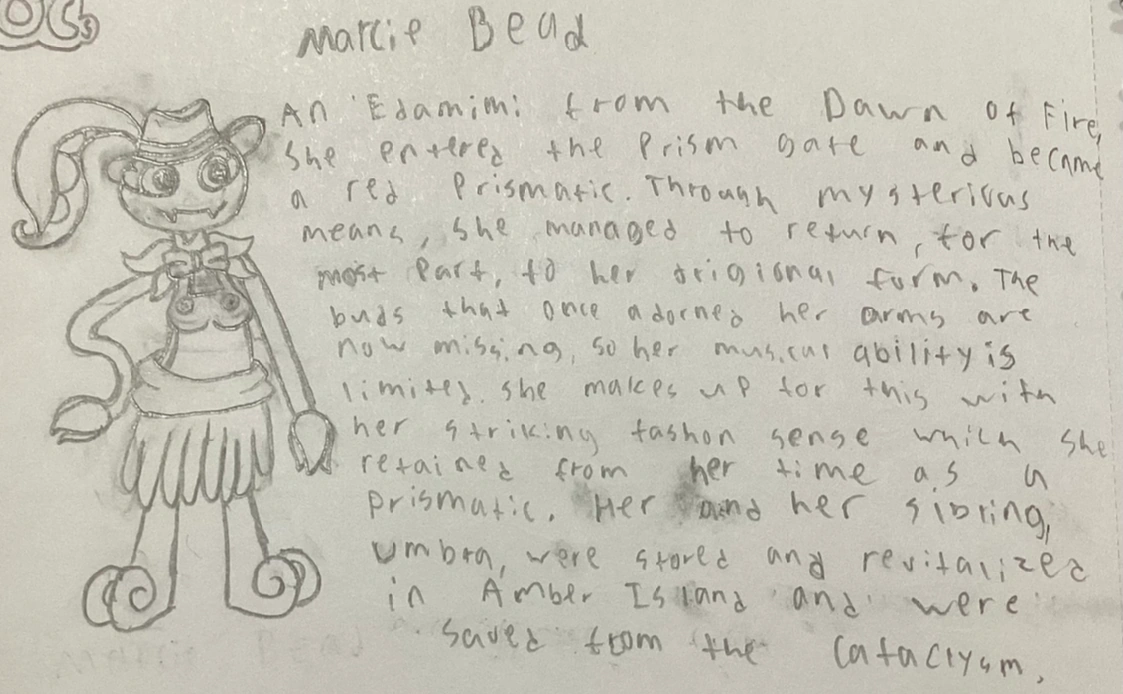 OCs
Marcie Bead
An Edamimi from the Dawn of Fire,
She entered the Prism gate and became
a red Prismatic. Through mysterious
means, she managed to return, for the
most Part, to her origional form. The
buds that once adorned her arms are
now missing, so her musical ability is
limited. she makes up for this with
her striking fashon sense which she
retained from her time as a
Prismatic. Her and her sibring,
Umbra, were stored and revitalized
in Amber Island and were
saved from the Cataclysm.